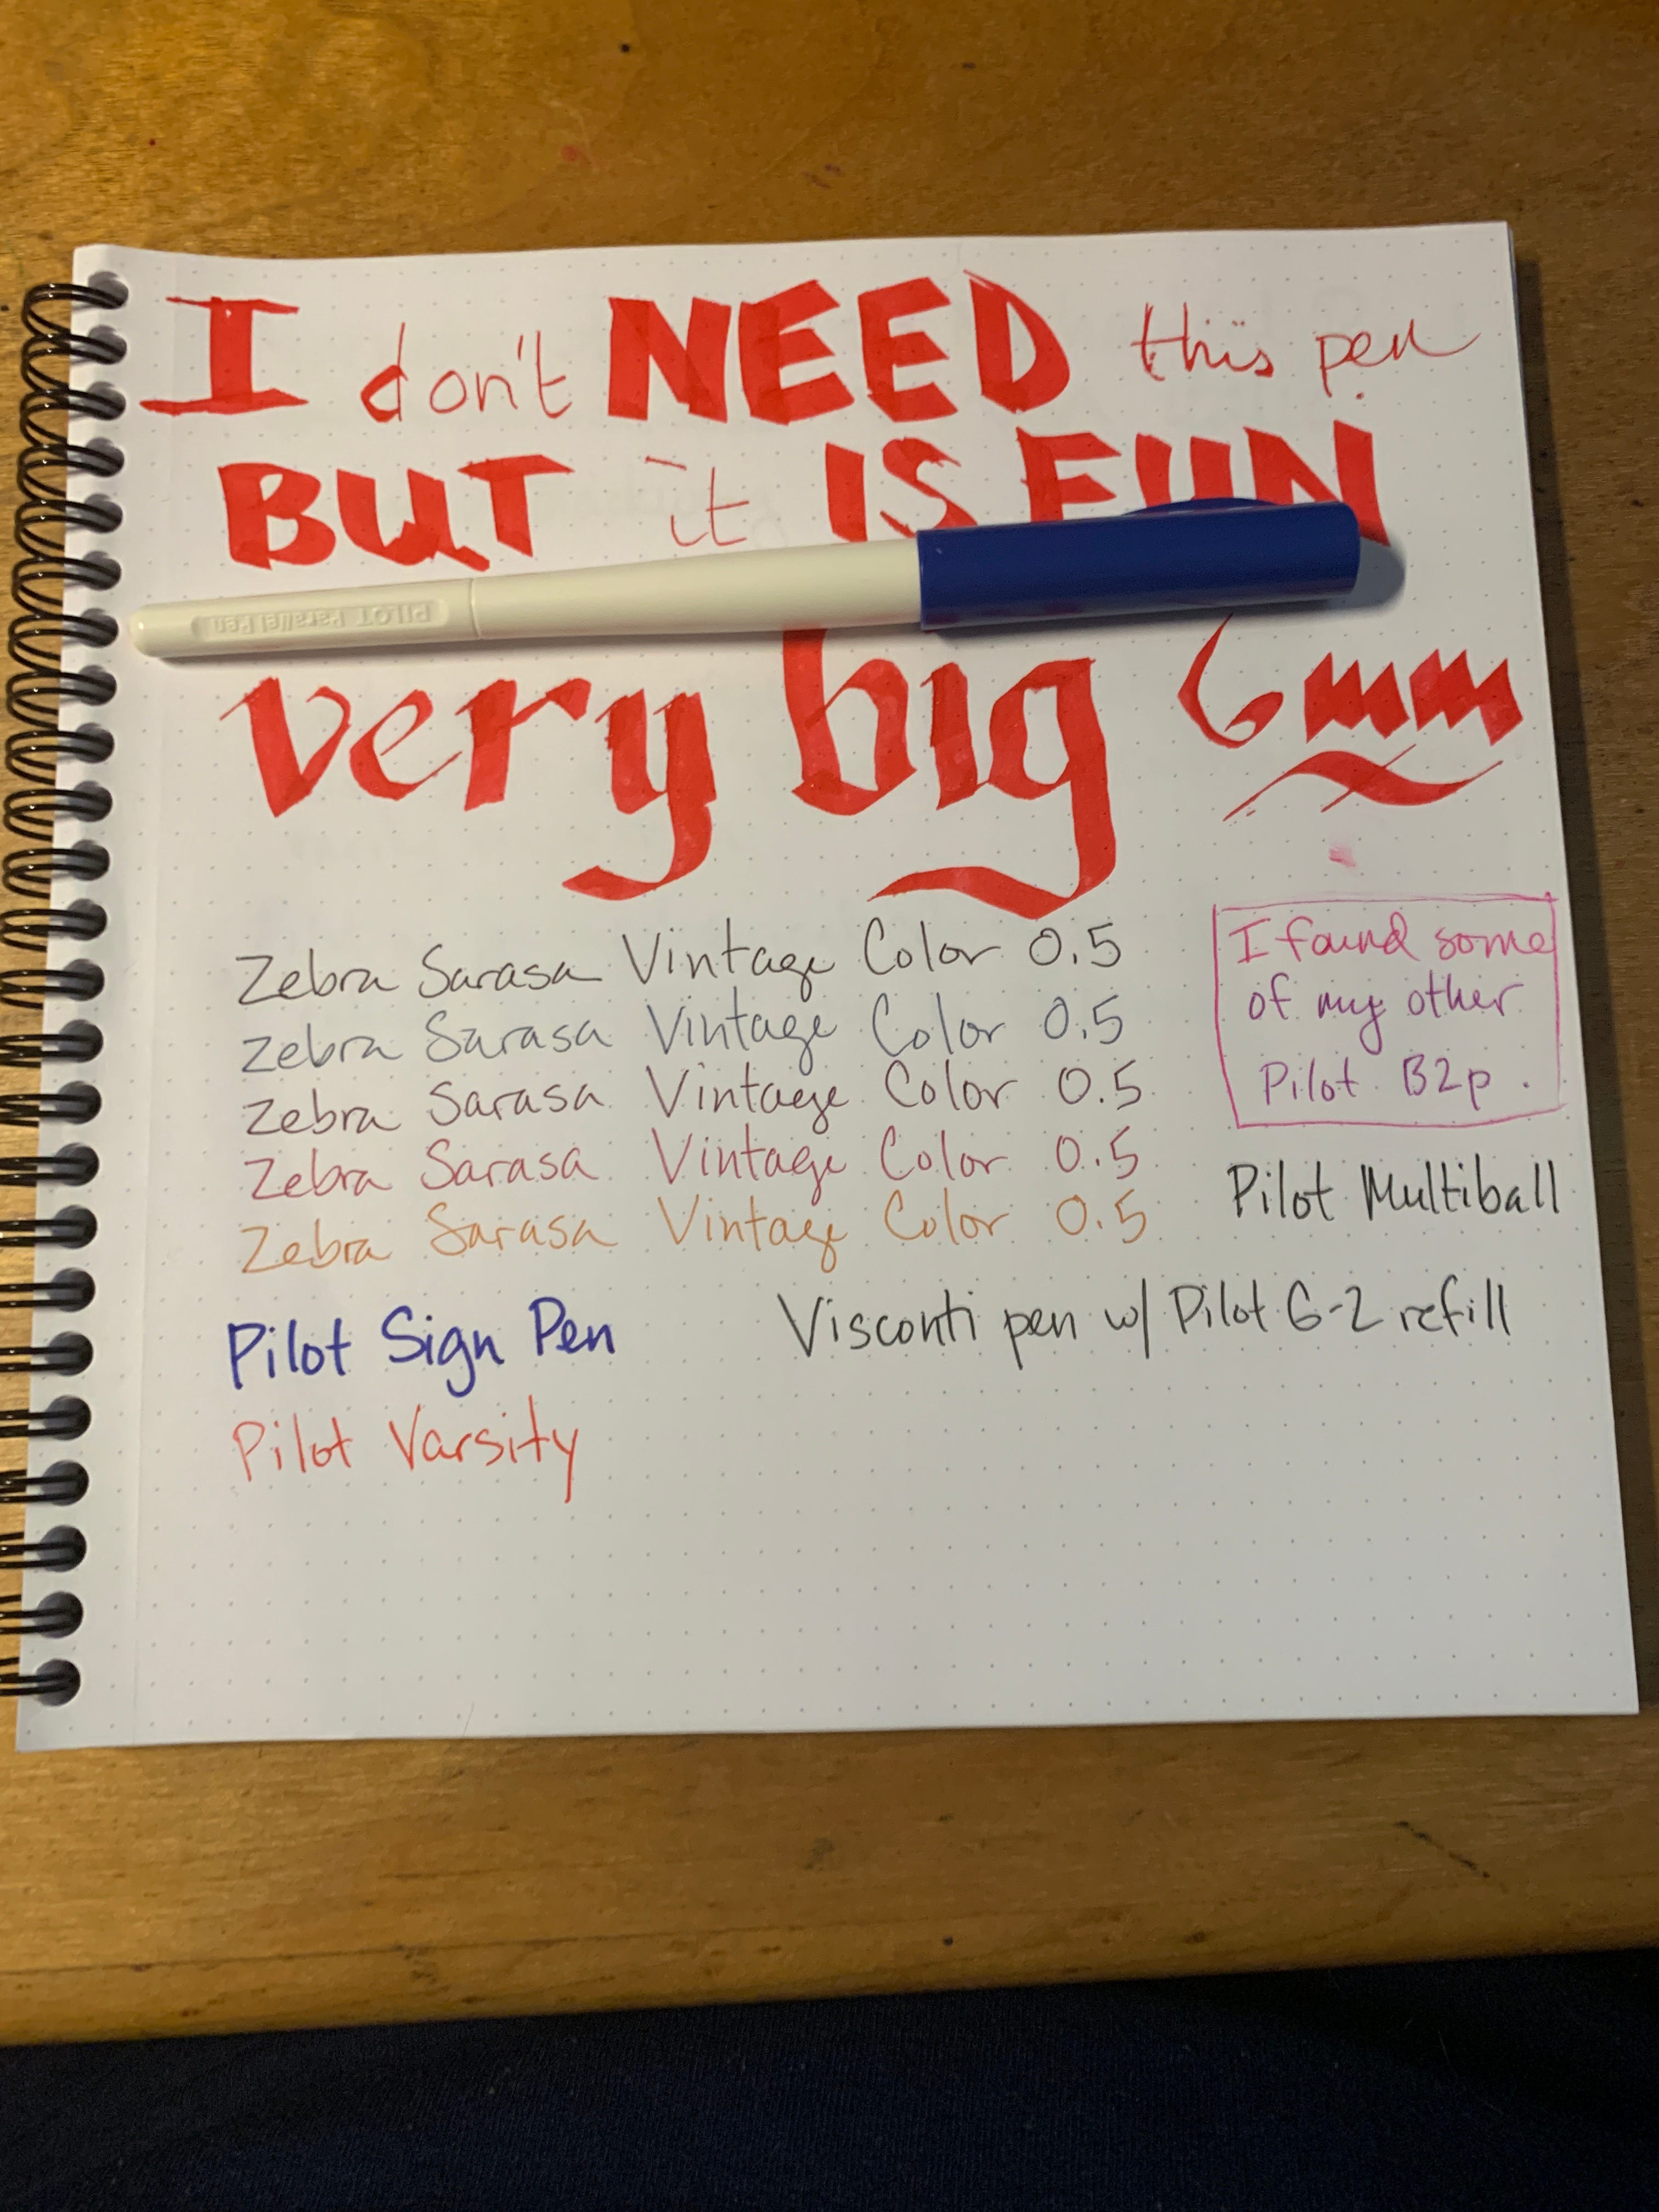 I don't NEED this pen
BUT it IS FUN
PILOT Parallel Pen
very big 6mm
Zebra Sarasa Vintage Color 0.5
Zebra Sarasa Vintage Color 0.5
Zebra Sarasa Vintage Color 0.5
Zebra Sarasa Vintage Color 0.5
Zebra Sarasa Vintage Color 0.5
I found some
of my other
Pilot B2p.
Pilot Multiball
Pilot Sign Pen
Visconti pen w/ Pilot G-2 refill
Pilot Varsity